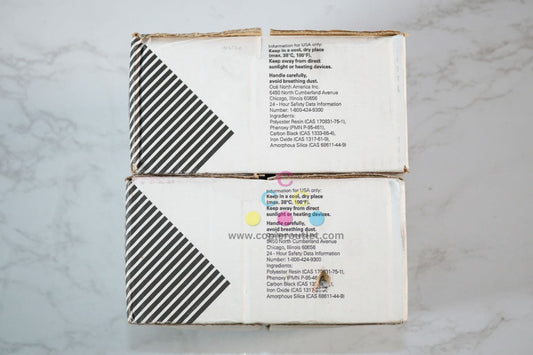 Information for USA only:
Keep in a cool, dry place
(max. 38°C, 100°F).
Keep away from direct
sunlight or heating devices.
Handle carefully,
avoid breathing dust.
Océ North America Inc.
5450 North Cumberland Avenue
Chicago, Illinois 60656
24 - Hour Safety Data Information
Number: 1-800-424-9300
Ingredients:
Polyester Resin (CAS 170831-75-1),
Phenoxy (PMN P-95-461),
Carbon Black (CAS 1333-86-4),
Iron Oxide (CAS 1317-61-9),
Amorphous Silica (CAS 68611-44-9)
Information for USA only:
Keep in a cool, dry place
(max. 38°C, 100°F).
Keep away from direct
sunlight or heating devices.
Handle carefully,
avoid breathing dust.
www.copieroutlet.com
5450 North Cumberland Avenue
Chicago, Illinois 60656
24 - Hour Safety Data Information
Number: 1-800-424-9300
Ingredients:
Polyester Resin
Phenoxy (PMN
Carbon Black (CAS
Iron Oxide (CAS
Amorphous Silica (CAS 68611-44-9)